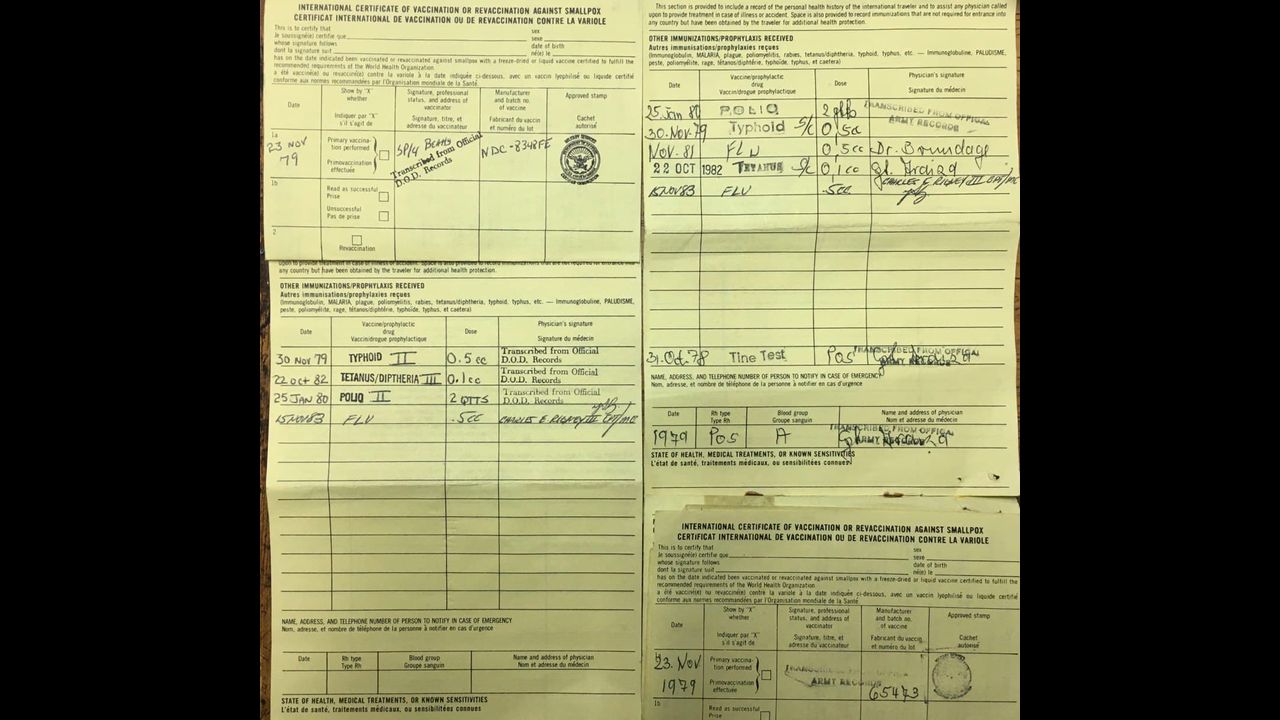 INTERNATIONAL CERTIFICATE OF VACCINATION OR REVACCINATION AGAINST SMALLPOX
CERTIFICAT INTERNATIONAL DE VACCINATION OU DE REVACCINATION CONTRE LA VARIOLE
This is to certify that
Je soussigné(e) certifie que
sex
sexe
whose signature follows
dont la signature suit
date of birth
né(e) le
has on the date indicated been vaccinated or revaccinated against smallpox with a freeze-dried or liquid vaccine certified to fulfill the
recommended requirements of the World Health Organization.
a été vacciné(e) ou revacciné(e) contre la variole à la date indiquée ci-dessous, avec un vaccin lyophilisé ou liquide certifié
conforme aux normes recommandées par l'Organisation mondiale de la Santé
Date
Show by "X"
whether
Indiquer par "X"
s'il s'agit de
Signature, professional
status, and address of
vaccinator
Signature, titre, et
adresse du vaccinateur
Manufacturer
and batch no.
of vaccine
Fabricant du vaccin
et numéro du lot
Approved stamp
Cachet
autorisé
1a
23 NOV
79
Primary vaccina-
tion performed
Primovaccination
effectuée
SP/4
Transcribed from Official
D.O.D. Records
NDC-8348FE
1b
Read as successful
Prise
Unsuccessful
Pas de prise
2
Revaccination
any country but have been obtained by the traveler for additional health protection.
OTHER IMMUNIZATIONS/PROPHYLAXIS RECEIVED
Autres immunisations/prophylaxies reçues
(Immunoglobulin, MALARIA, plague, poliomyelitis, rabies, tetanus/diphtheria, typhoid, typhus, etc. — Immunoglobuline, PALUDISME,
peste, poliomyélite, rage, tétanos/diphtérie, typhoïde, typhus, et caetera)
Date
Vaccine/prophylactic
drug
Vaccin/drogue prophylactique
Dose
Physician's signature
Signature du médecin
30 NOV 79 TYPHOID II 0.5 cc Transcribed from Official
D.O.D. Records
22 OCT 82 TETANUS/DIPTHERIA III 0.1cc Transcribed from Official
D.O.D. Records
25 JAN 80 POLIO II 2 QTTS Transcribed from Official
D.O.D. Records
15NOV83 FLU .5cc CHARLES E RIGNEY III CPT/MC
NAME, ADDRESS, AND TELEPHONE NUMBER OF PERSON TO NOTIFY IN CASE OF EMERGENCY
Nom, adresse, et numéro de téléphone de la personne à notifier en cas d'urgence
Date
Rh type
Type Rh
Blood group
Groupe sanguin
Name and address of physician
Nom et adresse du médecin
STATE OF HEALTH, MEDICAL TREATMENTS, OR KNOWN SENSITIVITIES
L'état de santé, traitements médicaux, ou sensibilités connues
This section is provided to include a record of the personal health history of the international traveler and to assist any physician called
upon to provide treatment in case of illness or accident. Space is also provided to record immunizations that are not required for entrance into
any country but have been obtained by the traveler for additional health protection.
OTHER IMMUNIZATIONS/PROPHYLAXIS RECEIVED
Autres immunisations/prophylaxies reçues
(Immunoglobulin, MALARIA, plague, poliomyelitis, rabies, tetanus/diphtheria, typhoid, typhus, etc. — Immunoglobuline, PALUDISME,
peste, poliomyélite, rage, tétanos/diphtérie, typhoïde, typhus, et caetera)
Date
Vaccine/prophylactic
drug
Vaccin/drogue prophylactique
Dose
Physician's signature
Signature du médecin
25 Jan 80 POLIO 2 TRANSCRIBED FROM OFFICIAL
ARMY RECORDS
30.Nov.79 Typhoid S/c 0,5cc
Nov. 81 FLU 0,5cc Dr. Broundage
22 OCT 1982 TETANUS S/c 0,1cc
15NOV83 FLU .5cc CHARLES E RIGNEY III CPT/MC
31.Oct.78 Tine Test Pos TRANSCRIBED FROM OFFICIAL
ARMY RECORDS
NAME, ADDRESS, AND TELEPHONE NUMBER OF PERSON TO NOTIFY IN CASE OF EMERGENCY
Nom, adresse, et numéro de téléphone de la personne à notifier en cas d'urgence
Date
Rh type
Type Rh
Blood group
Groupe sanguin
Name and address of physician
Nom et adresse du médecin
1979 Pos A TRANSCRIBED FROM OFFICIAL
ARMY RECORDS
STATE OF HEALTH, MEDICAL TREATMENTS, OR KNOWN SENSITIVITIES
L'état de santé, traitements médicaux, ou sensibilités connues
INTERNATIONAL CERTIFICATE OF VACCINATION OR REVACCINATION AGAINST SMALLPOX
CERTIFICAT INTERNATIONAL DE VACCINATION OU DE REVACCINATION CONTRE LA VARIOLE
This is to certify that
Je soussigné(e) certifie que
sex
sexe
whose signature follows
dont la signature suit
date of birth
né(e) le
has on the date indicated been vaccinated or revaccinated against smallpox with a freeze-dried or liquid vaccine certified to fulfill the
recommended requirements of the World Health Organization.
a été vacciné(e) ou revacciné(e) contre la variole à la date indiquée ci-dessous, avec un vaccin lyophilisé ou liquide certifié
conforme aux normes recommandées par l'Organisation mondiale de la Santé
Date
Show by "X"
whether
Indiquer par "X"
s'il s'agit de
Signature, professional
status, and address of
vaccinator
Signature, titre, et
adresse du vaccinateur
Manufacturer
and batch no.
of vaccine
Fabricant du vaccin
et numéro du lot
Approved stamp
Cachet
autorisé
1a
23. Nov
1979
Primary vaccina-
tion performed
Primovaccination
effectuée
TRANSCRIBED FROM
ARMY RECORDS
65473
1b
Read as successful
Prise